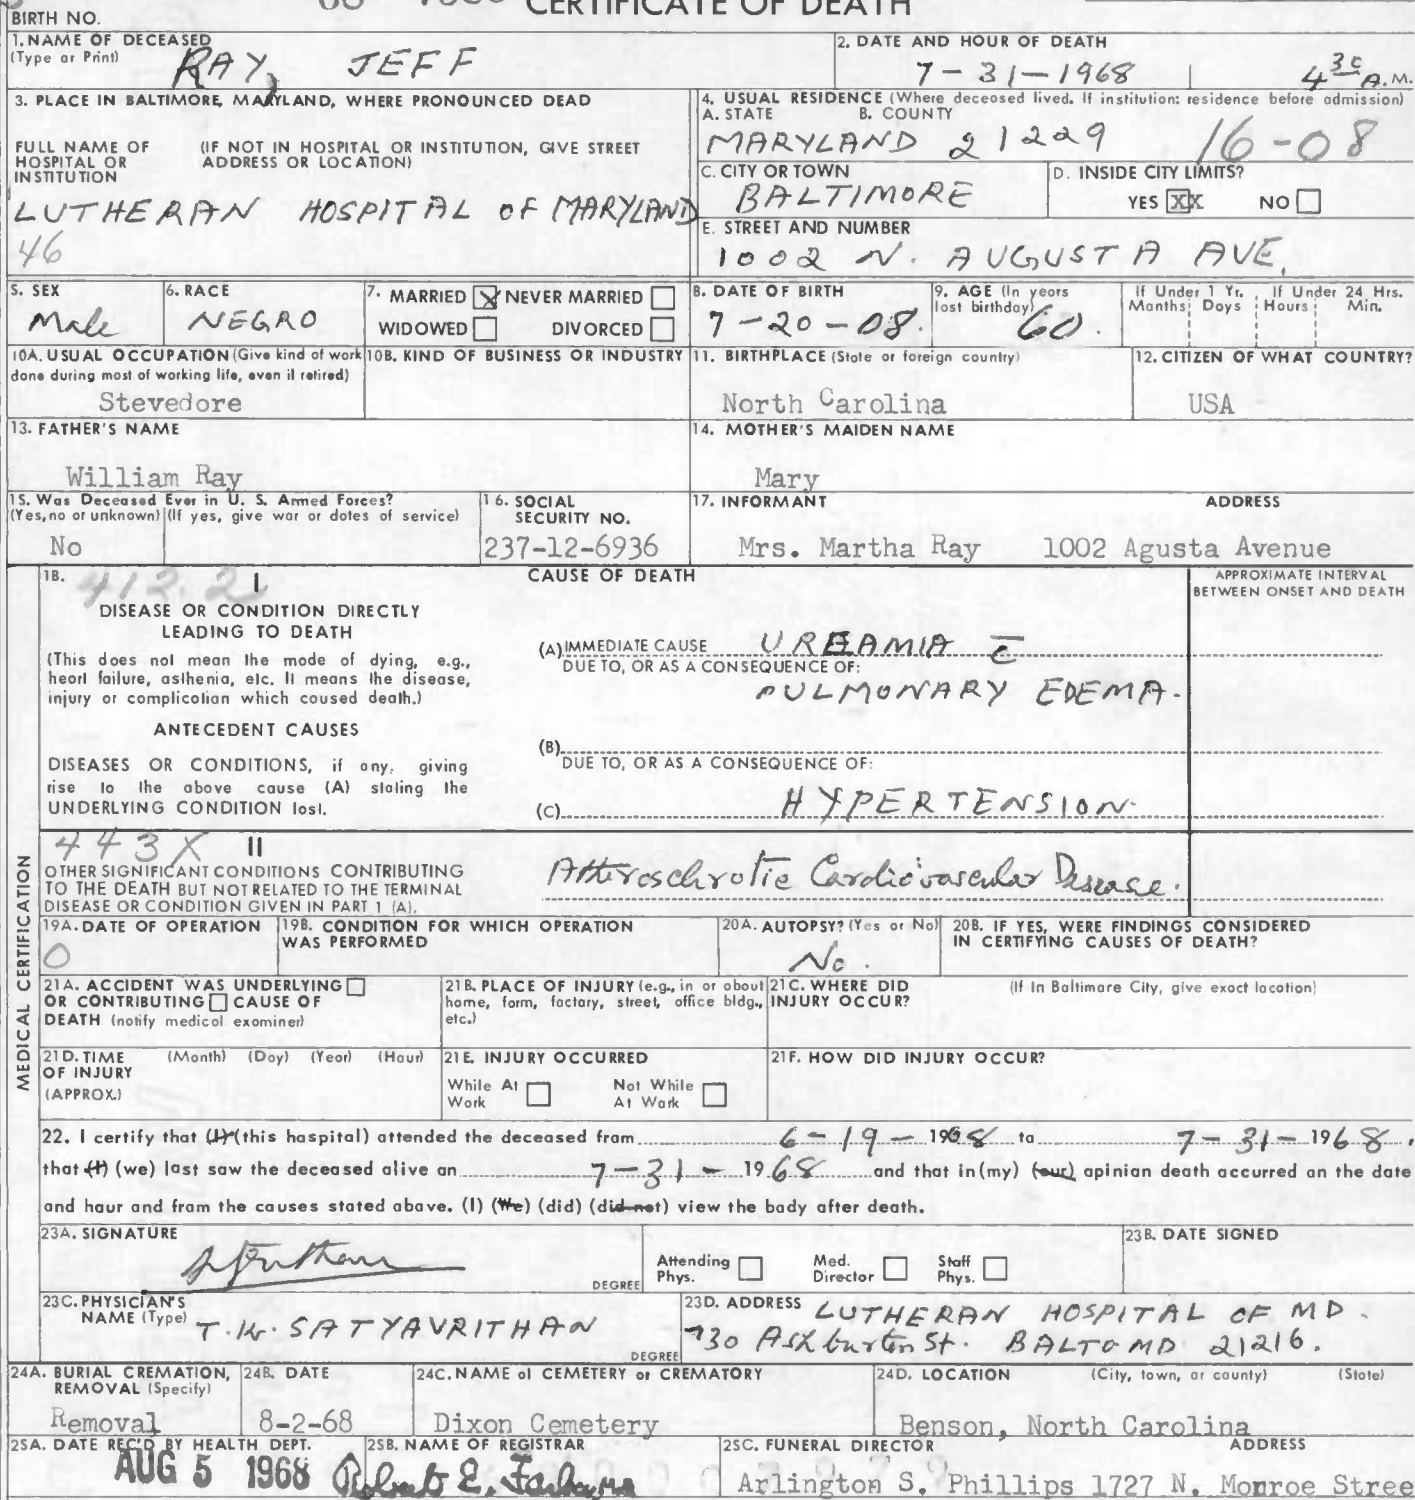 CERTIFICATE OF DEATH
BIRTH NO.
1. NAME OF DECEASED
(Type or Print) RAY, JEFF
2. DATE AND HOUR OF DEATH
7-31-1968 4 30 A.M.
3. PLACE IN BALTIMORE, MARYLAND, WHERE PRONOUNCED DEAD
FULL NAME OF HOSPITAL OR INSTITUTION (IF NOT IN HOSPITAL OR INSTITUTION, GIVE STREET ADDRESS OR LOCATION)
LUTHERAN HOSPITAL OF MARYLAND
46
4. USUAL RESIDENCE (Where deceased lived. If institution: residence before admission)
A. STATE B. COUNTY
MARYLAND 21229 16-08
C. CITY OR TOWN
BALTIMORE
D. INSIDE CITY LIMITS?
YES XX NO
E. STREET AND NUMBER
1002 N. AUGUSTA AVE.
5. SEX
Male
6. RACE
NEGRO
7. MARRIED X NEVER MARRIED
WIDOWED DIVORCED
8. DATE OF BIRTH
7-20-08.
9. AGE (In years last birthday)
60.
If Under 1 Yr. Months Days
If Under 24 Hrs. Hours Min.
10A. USUAL OCCUPATION (Give kind of work done during most of working life, even if retired)
Stevedore
10B. KIND OF BUSINESS OR INDUSTRY
11. BIRTHPLACE (State or foreign country)
North Carolina
12. CITIZEN OF WHAT COUNTRY?
USA
13. FATHER'S NAME
William Ray
14. MOTHER'S MAIDEN NAME
Mary
15. Was Deceased Ever in U. S. Armed Forces?
(Yes, no or unknown) (If yes, give war or dates of service)
No
16. SOCIAL SECURITY NO.
237-12-6936
17. INFORMANT ADDRESS
Mrs. Martha Ray 1002 Agusta Avenue
18. 412.2 I
CAUSE OF DEATH
APPROXIMATE INTERVAL BETWEEN ONSET AND DEATH
DISEASE OR CONDITION DIRECTLY LEADING TO DEATH
(This does not mean the mode of dying, e.g., heart failure, asthenia, etc. It means the disease, injury or complication which caused death.)
(A) IMMEDIATE CAUSE UREAMIA c̄
DUE TO, OR AS A CONSEQUENCE OF:
PULMONARY EDEMA.
ANTECEDENT CAUSES
DISEASES OR CONDITIONS, if any, giving rise to the above cause (A) stating the UNDERLYING CONDITION last.
(B)
DUE TO, OR AS A CONSEQUENCE OF:
(C) HYPERTENSION.
MEDICAL CERTIFICATION
443X II
OTHER SIGNIFICANT CONDITIONS CONTRIBUTING TO THE DEATH BUT NOT RELATED TO THE TERMINAL DISEASE OR CONDITION GIVEN IN PART 1 (A).
Attiroschrotic Cardiovascular Disease.
19A. DATE OF OPERATION
0
19B. CONDITION FOR WHICH OPERATION WAS PERFORMED
20A. AUTOPSY? (Yes or No)
No.
20B. IF YES, WERE FINDINGS CONSIDERED IN CERTIFYING CAUSES OF DEATH?
21A. ACCIDENT WAS UNDERLYING OR CONTRIBUTING CAUSE OF DEATH (notify medical examiner)
21B. PLACE OF INJURY (e.g., in or about home, form, factory, street, office bldg., etc.)
21C. WHERE DID INJURY OCCUR? (If In Baltimore City, give exact location)
21D. TIME OF INJURY (APPROX.) (Month) (Day) (Year) (Hour)
21E. INJURY OCCURRED
While At Work Not While At Work
21F. HOW DID INJURY OCCUR?
22. I certify that (I) (this hospital) attended the deceased from 6-19-1968 to 7-31-1968,
that (I) (we) last saw the deceased alive on 7-31-1968 and that in (my) (our) opinion death occurred on the date
and hour and from the causes stated above. (I) (We) (did) (did not) view the body after death.
23A. SIGNATURE
DEGREE
Attending Phys. Med. Director Staff Phys.
23B. DATE SIGNED
23C. PHYSICIAN'S NAME (Type) T.K. SATYAVRITHAN
DEGREE
23D. ADDRESS LUTHERAN HOSPITAL OF MD.
730 Ashburton St. BALTO MD 21216.
24A. BURIAL CREMATION, REMOVAL (Specify)
Removal
24B. DATE
8-2-68
24C. NAME of CEMETERY or CREMATORY
Dixon Cemetery
24D. LOCATION (City, town, or county) (State)
Benson, North Carolina
25A. DATE REC'D BY HEALTH DEPT.
AUG 5 1968
25B. NAME OF REGISTRAR
Robert E. Farber
25C. FUNERAL DIRECTOR ADDRESS
Arlington S. Phillips 1727 N. Monroe Stree